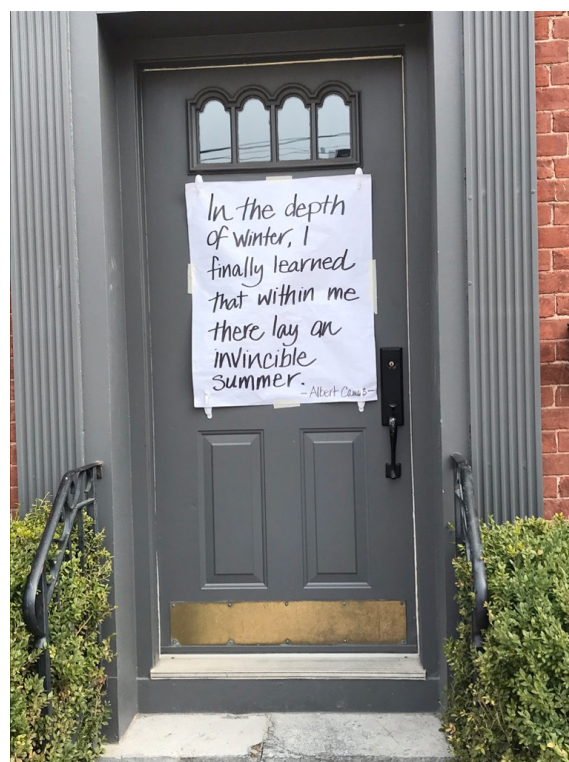 In the depth
of winter, I
finally learned
that within me
there lay an
invincible
summer.
- Albert Camus -